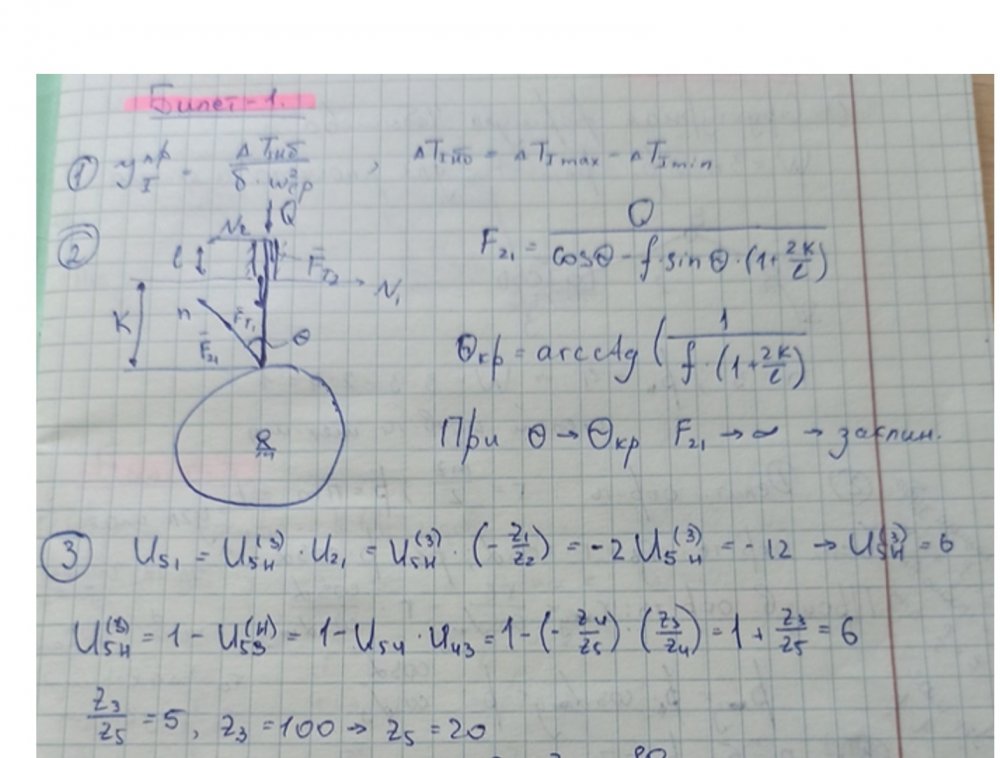 Билет-1.
① У_I^пр = ΔT_Iнб / δ·ω²_ср , ΔT_Iнб = ΔT_Imax - ΔT_Imin
② Q
N₂
F_21 = Q / cosθ - f·sinθ·(1+2K/l)
l
F̄_T2
N₁
K
n
F̄_T1
θ
F̄_21
θ_кр = arcctg (1 / f·(1+2K/l))
При θ → θ_кр F_21 → ∞ → заклин.
③ U_51 = U_5H^(3) · U_21 = U_5H^(3) · (-z₁/z₂) = -2 U_5H^(3) = -12 → U_5H^(3) = 6
U_5H^(3) = 1 - U_53^(H) = 1 - U_54 · U_43 = 1 - (-z₄/z₅) · (z₃/z₄) = 1 + z₃/z₅ = 6
z₃/z₅ = 5, z₃ = 100 → z₅ = 20